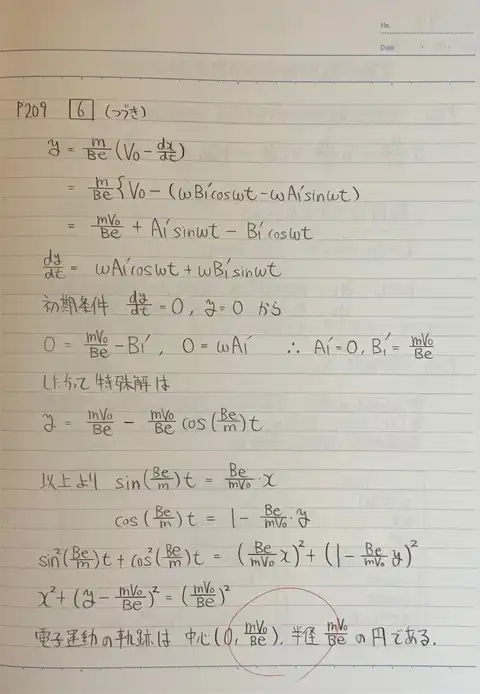 No.
Date
P209 6 (つづき)
y = m/Be (V₀ - dx/dt)
= m/Be {V₀ - (ωB₁'cosωt - ωA₁'sinωt)
= mV₀/Be + A₁'sinωt - B₁'cosωt
dy/dt = ωA₁'cosωt + ωB₁'sinωt
初期条件 dy/dt = 0, y = 0 から
0 = mV₀/Be - B₁', 0 = ωA₁' ∴ A₁' = 0, B₁' = mV₀/Be
したがって特殊解は
y = mV₀/Be - mV₀/Be cos(Be/m)t
以上より sin(Be/m)t = Be/mV₀・x
cos(Be/m)t = 1 - Be/mV₀・y
sin²(Be/m)t + cos²(Be/m)t = (Be/mV₀ x)² + (1 - Be/mV₀ y)²
x² + (y - mV₀/Be)² = (mV₀/Be)²
電子運動の軌跡は 中心(0, mV₀/Be), 半径 mV₀/Be の円である.